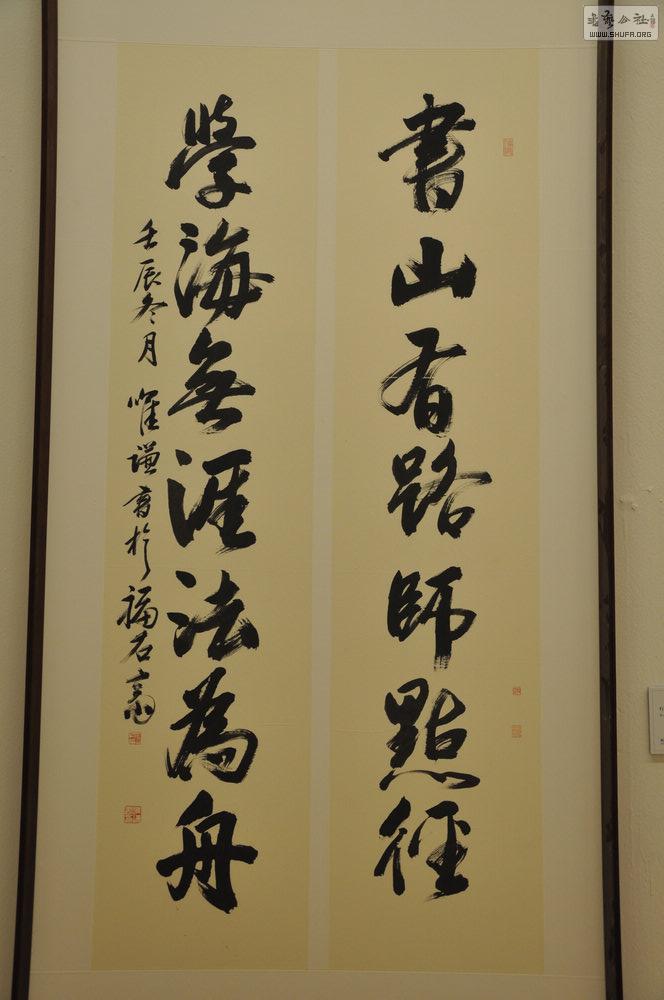 書山有路師點徑
學海無涯法為舟
壬辰冬月 唯謙書於福石齋
書藝公社
WWW.SHUFA.ORG